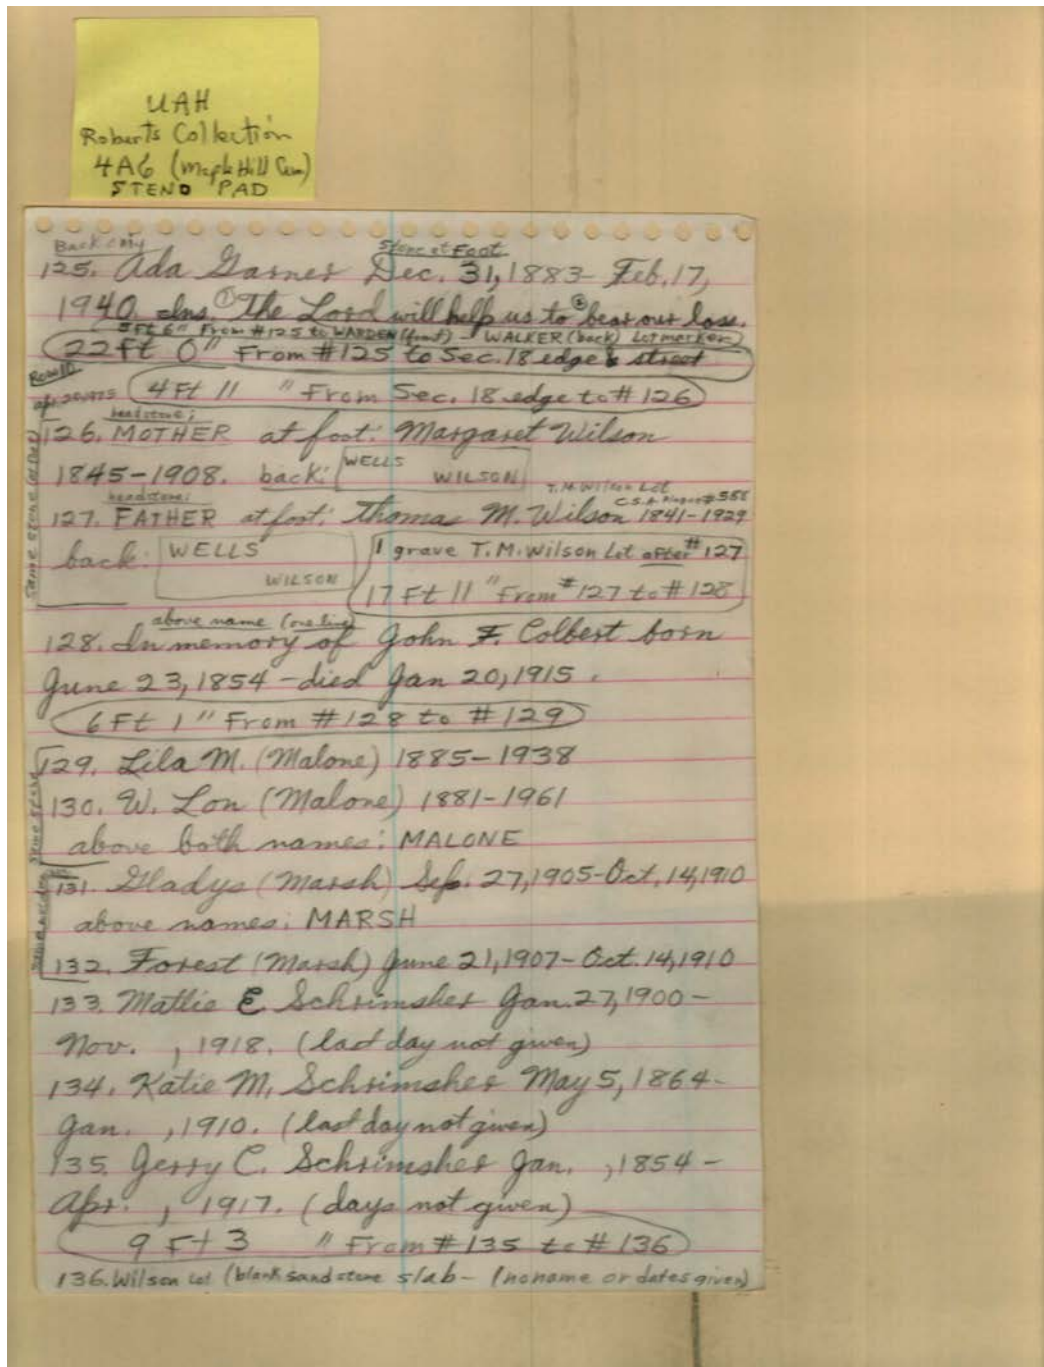 UAH
Roberts Collection
4A6 (Maple Hill Cem)
STENO PAD
Back only
Stone at Foot
125. Ada Garner Dec. 31, 1883 - Feb. 17,
1940. Ins. ① The Lord will help us to ② bear our loss.
5 Ft 6" From #125 to WARDEN (front) - WALKER (back) Lot marker
22 ft 0" From #125 to Sec. 18 edge & street
Row 10
Apr 20, 1975
4 Ft 11 " From Sec. 18 edge to # 126
headstone:
126. MOTHER at foot: Margaret Wilson
1845-1908. back: WELLS
WILSON
headstone:
T. M. Wilson Lot
C.S.A. #588
127. FATHER at foot: Thomas M. Wilson 1841-1929
back: WELLS
WILSON
1 grave T. M. Wilson Lot after #127
17 Ft 11 " From #127 to #128
same stone
above name (one line)
128. In memory of John F. Colbert born
June 23, 1854 - died Jan 20, 1915.
6 Ft 1" From #128 to #129
129. Lila M. (Malone) 1885-1938
130. W. Lon (Malone) 1881-1961
above both names: MALONE
same stone
131. Gladys (Marsh) Sep. 27, 1905-Oct. 14, 1910
above names: MARSH
132. Forest (Marsh) June 21, 1907- Oct. 14, 1910
133. Mattie E Schrimsher Jan. 27, 1900 -
Nov. , 1918. (last day not given)
134. Katie M. Schrimsher May 5, 1864-
Jan. , 1910. (last day not given)
135. Jerry C. Schrimsher Jan. , 1854 -
Apr. , 1917. (days not given)
9 Ft 3 " From #135 to #136
136. Wilson Lot (blank sandstone slab - (no name or dates given)